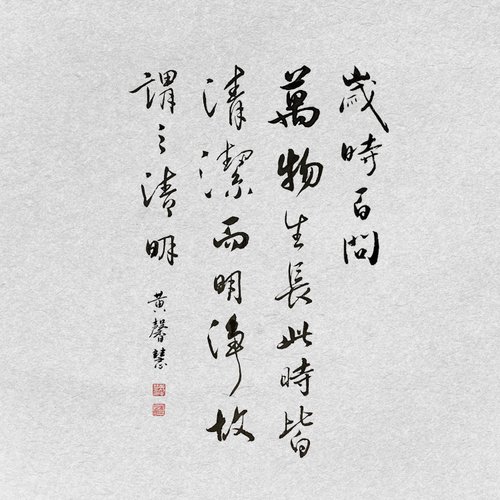 歲時百問
萬物生長此時皆
清潔而明淨故
謂之清明
黃馨慧